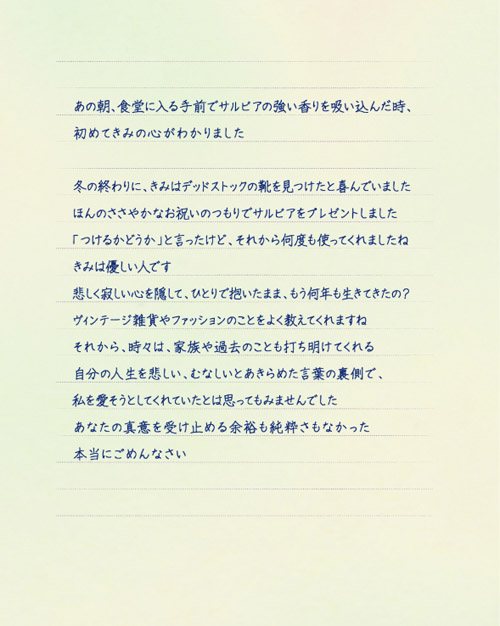 あの朝、食堂に入る手前でサルビアの強い香りを吸い込んだ時、
初めてきみの心がわかりました
冬の終わりに、きみはデッドストックの靴を見つけたと喜んでいました
ほんのささやかなお祝いのつもりでサルビアをプレゼントしました
「つけるかどうか」と言ったけど、それから何度も使ってくれましたね
きみは優しい人です
悲しく寂しい心を隠して、ひとりで抱いたまま、もう何年も生きてきたの?
ヴィンテージ雑貨やファッションのことをよく教えてくれますね
それから、時々は、家族や過去のことも打ち明けてくれる
自分の人生を悲しい、むなしいとあきらめた言葉の裏側で、
私を愛そうとしてくれていたとは思ってもみませんでした
あなたの真意を受け止める余裕も純粋さもなかった
本当にごめんなさい